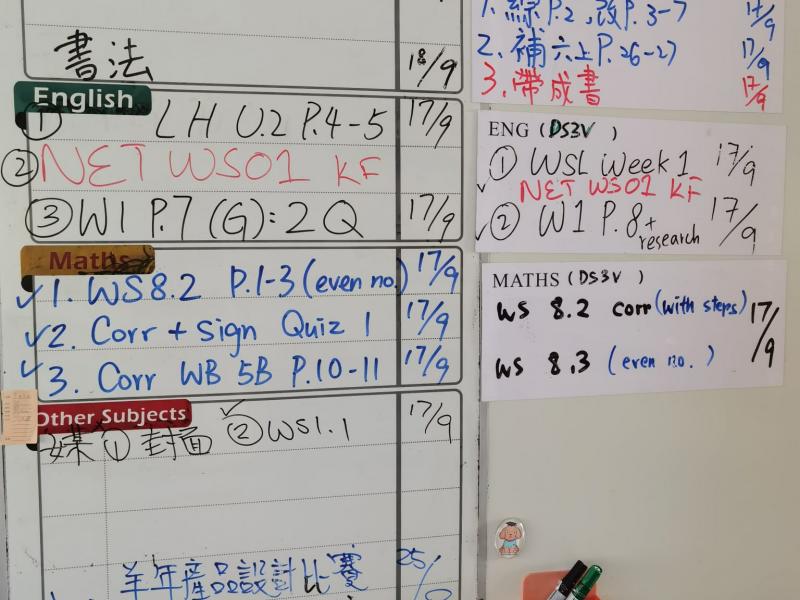 書法 18/9
English
① LH U.2 P.4-5 17/9
② NET WS01 KF
③ W1 P.7 (G): 2Q 17/9
Maths
✓1. WS8.2 P.1-3 (even no.) 17/9
✓2. Corr + sign Quiz 1 17/9
✓3. Corr WB 5B P.10-11 17/9
Other Subjects
媒 ① 封面 ✓② WS1.1 17/9
產品設計比賽 25/
1. 綜P.2, 改P.3-7 17/9
2. 補六上P.26-27 17/9
3. 帶成書 17/9
ENG (DS3V)
① WSL Week 1 17/9
✓ NET WS01 KF
✓② W1 P.8 + research 17/9
MATHS (DS3V)
WS 8.2 corr (with steps) 17/9
WS 8.3 (even no.)